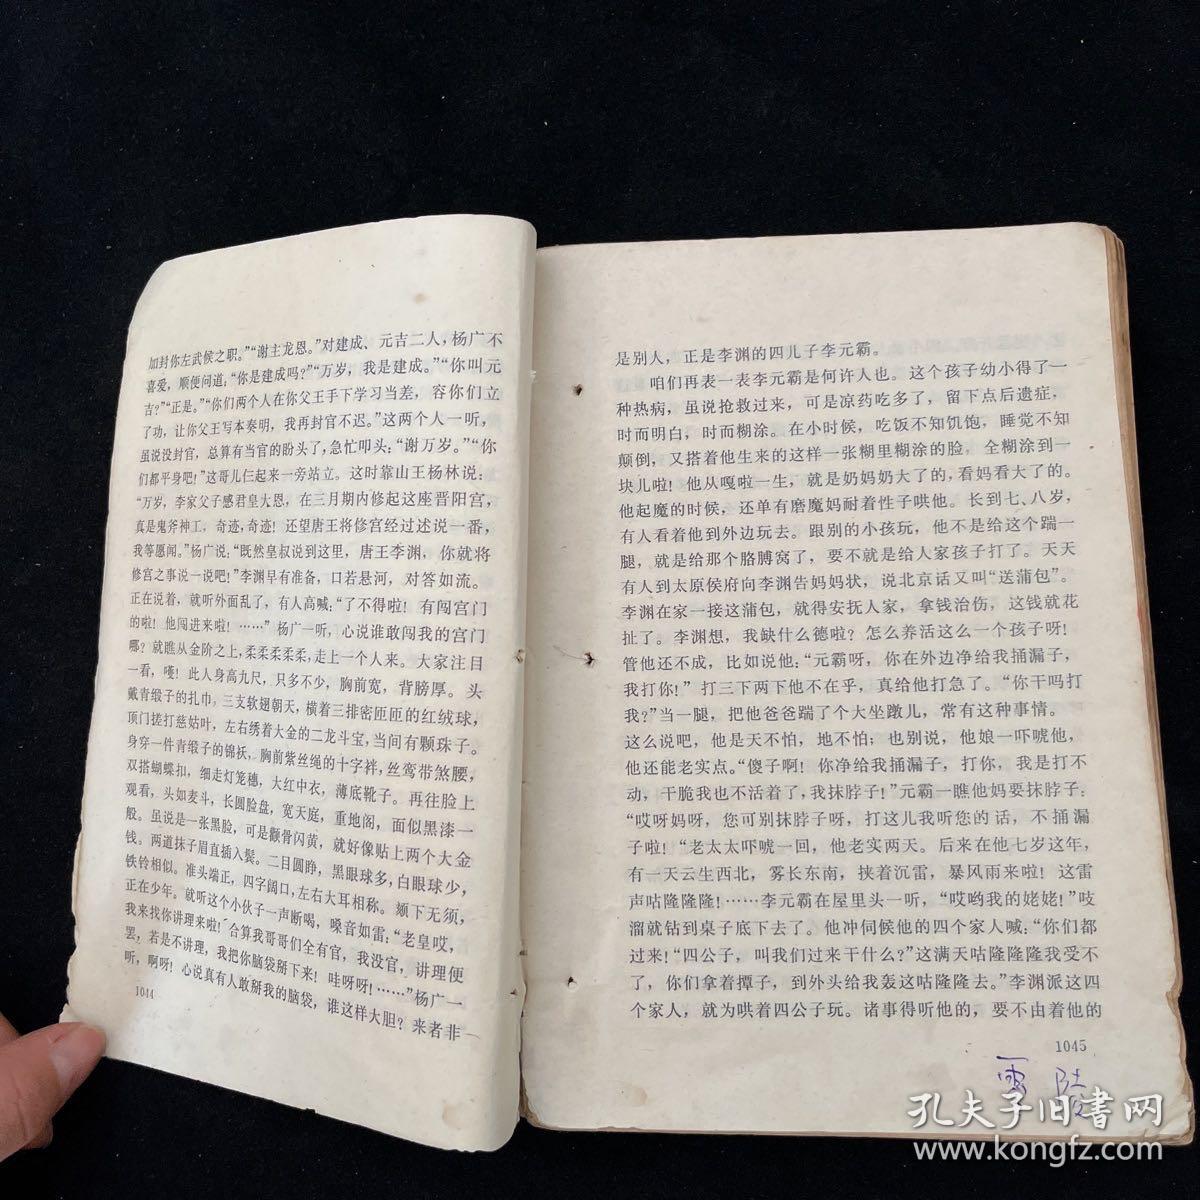 加封你左武候之职。”“谢主龙恩。”对建成、元吉二人，杨广不
喜爱，顺便问道，“你是建成吗？”“万岁，我是建成。”“你叫元
吉？”“正是。”“你们两个人在你父王手下学习当差，容你们立
了功，让你父王写本奏明，我再封官不迟。”这两个人一听，
虽说没封官，总算有当官的盼头了，急忙叩头：“谢万岁。”“你
们都平身吧！”这哥儿仨起来一旁站立。这时靠山王杨林说：
“万岁，李家父子感君皇大恩，在三月期内修起这座晋阳宫，
真是鬼斧神工，奇迹，奇迹！还望唐王将修宫经过述说一番，
我等愿闻。”杨广说，“既然皇叔说到这里，唐王李渊，你就将
修宫之事说一说吧！”李渊早有准备，口若悬河，对答如流。
正在说着，就听外面乱了，有人高喊：“了不得啦！有闯宫门
的啦！他闯进来啦！……”杨广一听，心说谁敢闯我的宫门
哪？就瞧从金阶之上，柔柔柔柔柔，走上一个人来。大家注目
一看，嚄！此人身高九尺，只多不少，胸前宽，背膀厚。头
戴青缎子的扎巾，三支软翅朝天，横着三排密匝匝的红绒球，
顶门搓打慈姑叶，左右绣着大金的二龙斗宝，当间有颗珠子。
身穿一件青缎子的锦袄，胸前紫丝绳的十字袢，丝鸾带煞腰，
双搭蝴蝶扣，细走灯笼穗，大红中衣，薄底靴子。再往脸上
观看，头如麦斗，长圆脸盘，宽天庭，重地阁，面似黑漆一
般。虽说是一张黑脸，可是颧骨闪黄，就好像贴上两个大金
钱。两道抹子眉直插入鬓。二目圆睁，黑眼球多，白眼球少，
铁铃相似。准头端正，四字阔口，左右大耳相称。颏下无须，
正在少年。就听这个小伙子一声断喝，嗓音如雷：“老皇哎，
我来找你讲理来啦！合算我哥哥们全有官，我没官，讲理便
罢，若是不讲理，我把你脑袋掰下来！哇呀呀！……”杨广一
听，啊呀！心说真有人敢掰我的脑袋，谁这样大胆？来者非
1044
是别人，正是李渊的四儿子李元霸。
咱们再表一表李元霸是何许人也。这个孩子幼小得了一
种热病，虽说抢救过来，可是凉药吃多了，留下点后遗症，
时而明白，时而糊涂。在小时候，吃饭不知饥饱，睡觉不知
颠倒，又搭着他生来的这样一张糊里糊涂的脸，全糊涂到一
块儿啦！他从嘎啦一生，就是奶妈奶大了的，看妈看大了的。
他起魔的时候，还单有磨魔妈耐着性子哄他。长到七、八岁，
有人看着他到外边玩去。跟别的小孩玩，他不是给这个踹一
腿，就是给那个胳膊窝了，要不就是给人家孩子打了。天天
有人到太原侯府向李渊告妈妈状，说北京话又叫“送蒲包”。
李渊在家一接这蒲包，就得安抚人家，拿钱治伤，这钱就花
扯了。李渊想，我缺什么德啦？怎么养活这么一个孩子呀！
管他还不成，比如说他：“元霸呀，你在外边净给我捅漏子，
我打你！”打三下两下他不在乎，真给他打急了。“你干吗打
我？”当一腿，把他爸爸踹了个大坐蹾儿，常有这种事情。
这么说吧，他是天不怕，地不怕；也别说，他娘一吓唬他，
他还能老实点。“傻子啊！你净给我捅漏子，打你，我是打不
动，干脆我也不活着了，我抹脖子！”元霸一瞧他妈要抹脖子：
“哎呀妈呀，您可别抹脖子呀，打这儿我听您的话，不捅漏
子啦！”老太太吓唬一回，他老实两天。后来在他七岁这年，
有一天云生西北，雾长东南，挟着沉雷，暴风雨来啦！这雷
声咕隆隆隆！……李元霸在屋里头一听，“哎哟我的姥姥！”吱
溜就钻到桌子底下去了。他冲伺候他的四个家人喊：“你们都
过来！”“四公子，叫我们过来干什么？”“这满天咕隆隆隆我受不
了，你们拿着撢子，到外头给我轰这咕隆隆去。”李渊派这四
个家人，就为哄着四公子玩。诸事得听他的，要不由着他的
1045
孔夫子旧书网
www.kongfz.com